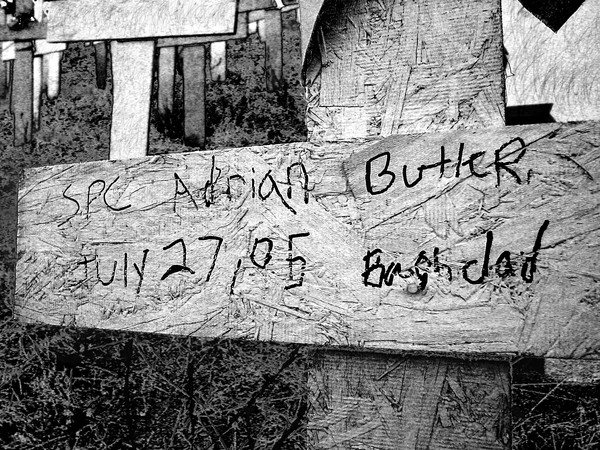 SPC Adrian Butler
July 27, 05 Baghdad